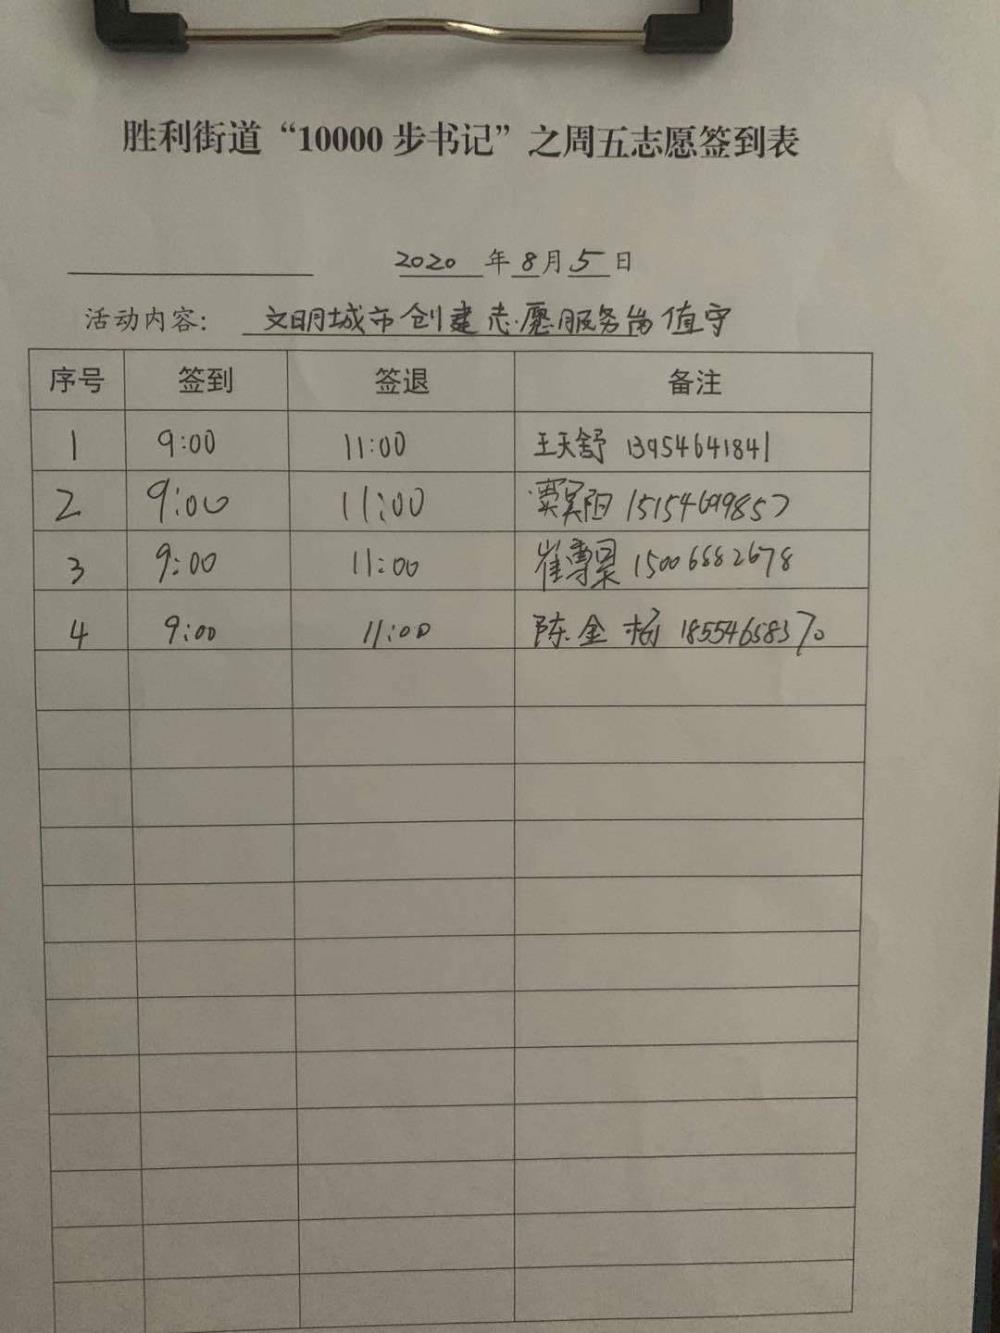 胜利街道“10000步书记”之周五志愿签到表
2020年8月5日
活动内容：文明城市创建志愿服务岗值守
序号 签到 签退 备注
1 9:00 11:00 王天舒 13954641841
2 9:00 11:00 贾昊阳 15154699857
3 9:00 11:00 崔雪昊 15006682678
4 9:00 11:00 陈金杨 18554658370